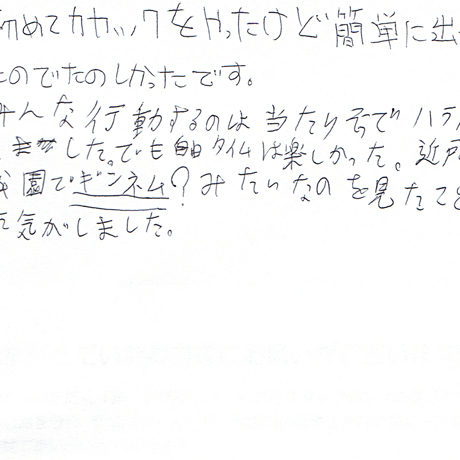 初めてカヤックをやったけど簡単に出
たのでたのしかったです。
みんな行動するのは当たり前でハラハラ
しました。でも自由タイムは楽しかった。近戸
園でギンネム?みたいなのを見たこと
気がしました。